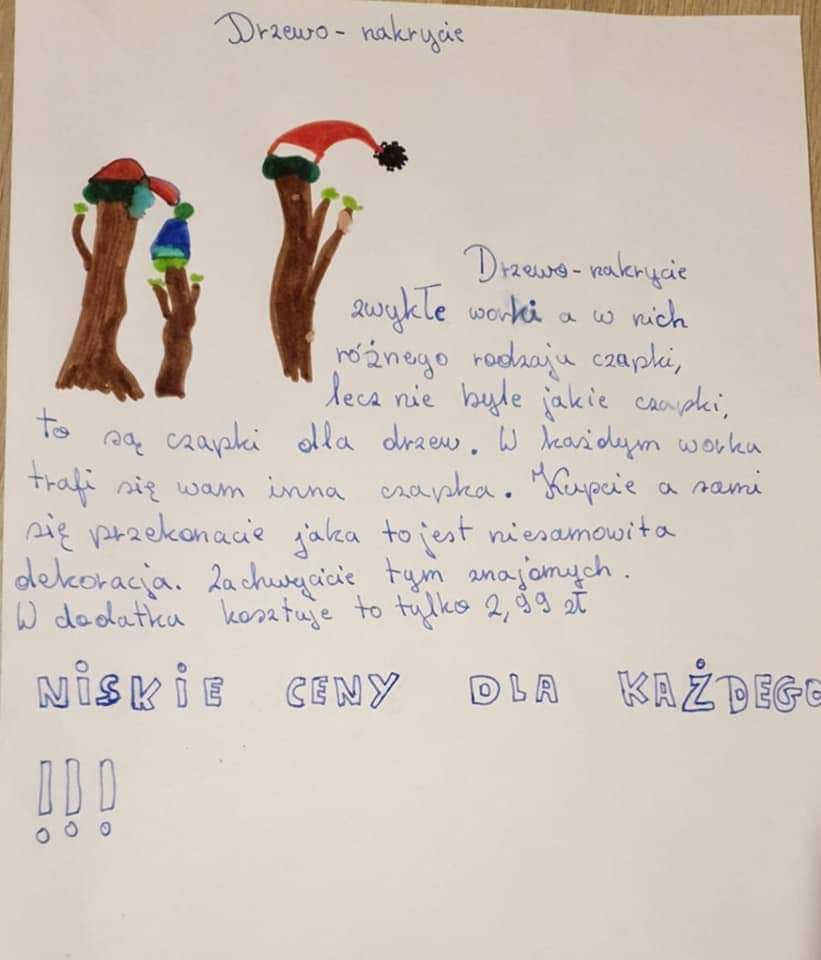 Drzewo - nakrycie
Drzewo - nakrycie
zwykłe worki a w nich
różnego rodzaju czapki,
lecz nie byle jakie czapki,
to są czapki dla drzew. W każdym worku
trafi się wam inna czapka. Kupcie a sami
się przekonacie jaka to jest niesamowita
dekoracja. Zachwycicie tym znajomych.
W dodatku kosztuje to tylko 2,99 zł
NISKIE CENY DLA KAŻDEGO
!!!